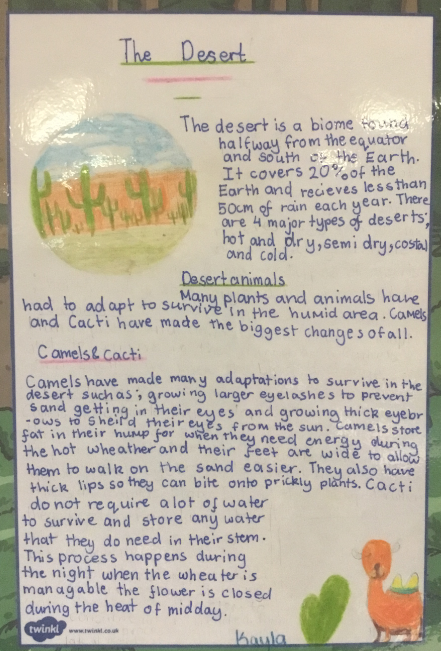 The Desert
The desert is a biome found
halfway from the equator
and south of the Earth.
It covers 20% of the
Earth and recieves less than
50cm of rain each year. There
are 4 major types of deserts;
hot and dry, semi dry, costal
and cold.
Desert animals
Many plants and animals have
had to adapt to survive in the humid area. Camels
and Cacti have made the biggest changes of all.
Camels & Cacti
Camels have made many adaptations to survive in the
desert such as; growing larger eyelashes to prevent
sand getting in their eyes and growing thick eyebr
-ows to sheild their eyes from the sun. Camels store
fat in their hump for when they need energy during
the hot wheather and their feet are wide to allow
them to walk on the sand easier. They also have
thick lips so they can bite onto prickly plants. Cacti
do not require alot of water
to survive and store any water
that they do need in their stem.
This process happens during
the night when the wheater is
managable the flower is closed
during the heat of midday.
twinkl www.twinkl.co.uk
Kayla